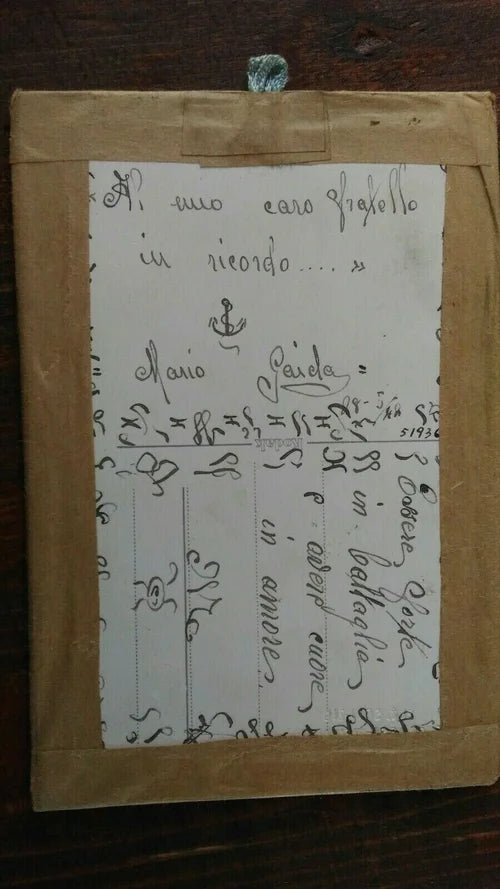 Al mio caro fratello
in ricordo.... »
Mario Gaida "
Kodak
51936
Essere forte
in battaglia
e avere cuore
in amore.